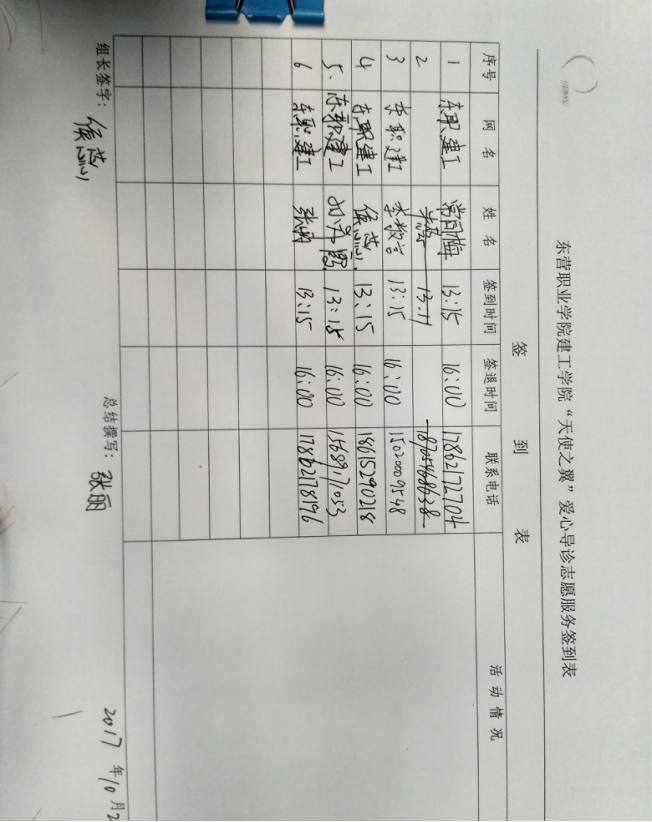 东营职业学院建工学院“天使之翼”爱心导诊志愿服务签到表
签 到 表
序号 网 名 姓 名 签到时间 签退时间 联系电话 活 动 情 况
1 东职建工 常同梅 13:15 16:00 17862172704
2 13:11 18705468638
3 东职建工 李数言 13:15 16:00 15020009548
4 东职建工 侯蕊 13:15 16:00 18615290218
5. 东职建工 13:15 16:00 15689171053
6 东职建工 张丽 13:15 16:00 17862178196
组长签字: 侯蕊 总结撰写: 张丽 2017 年 10 月 2